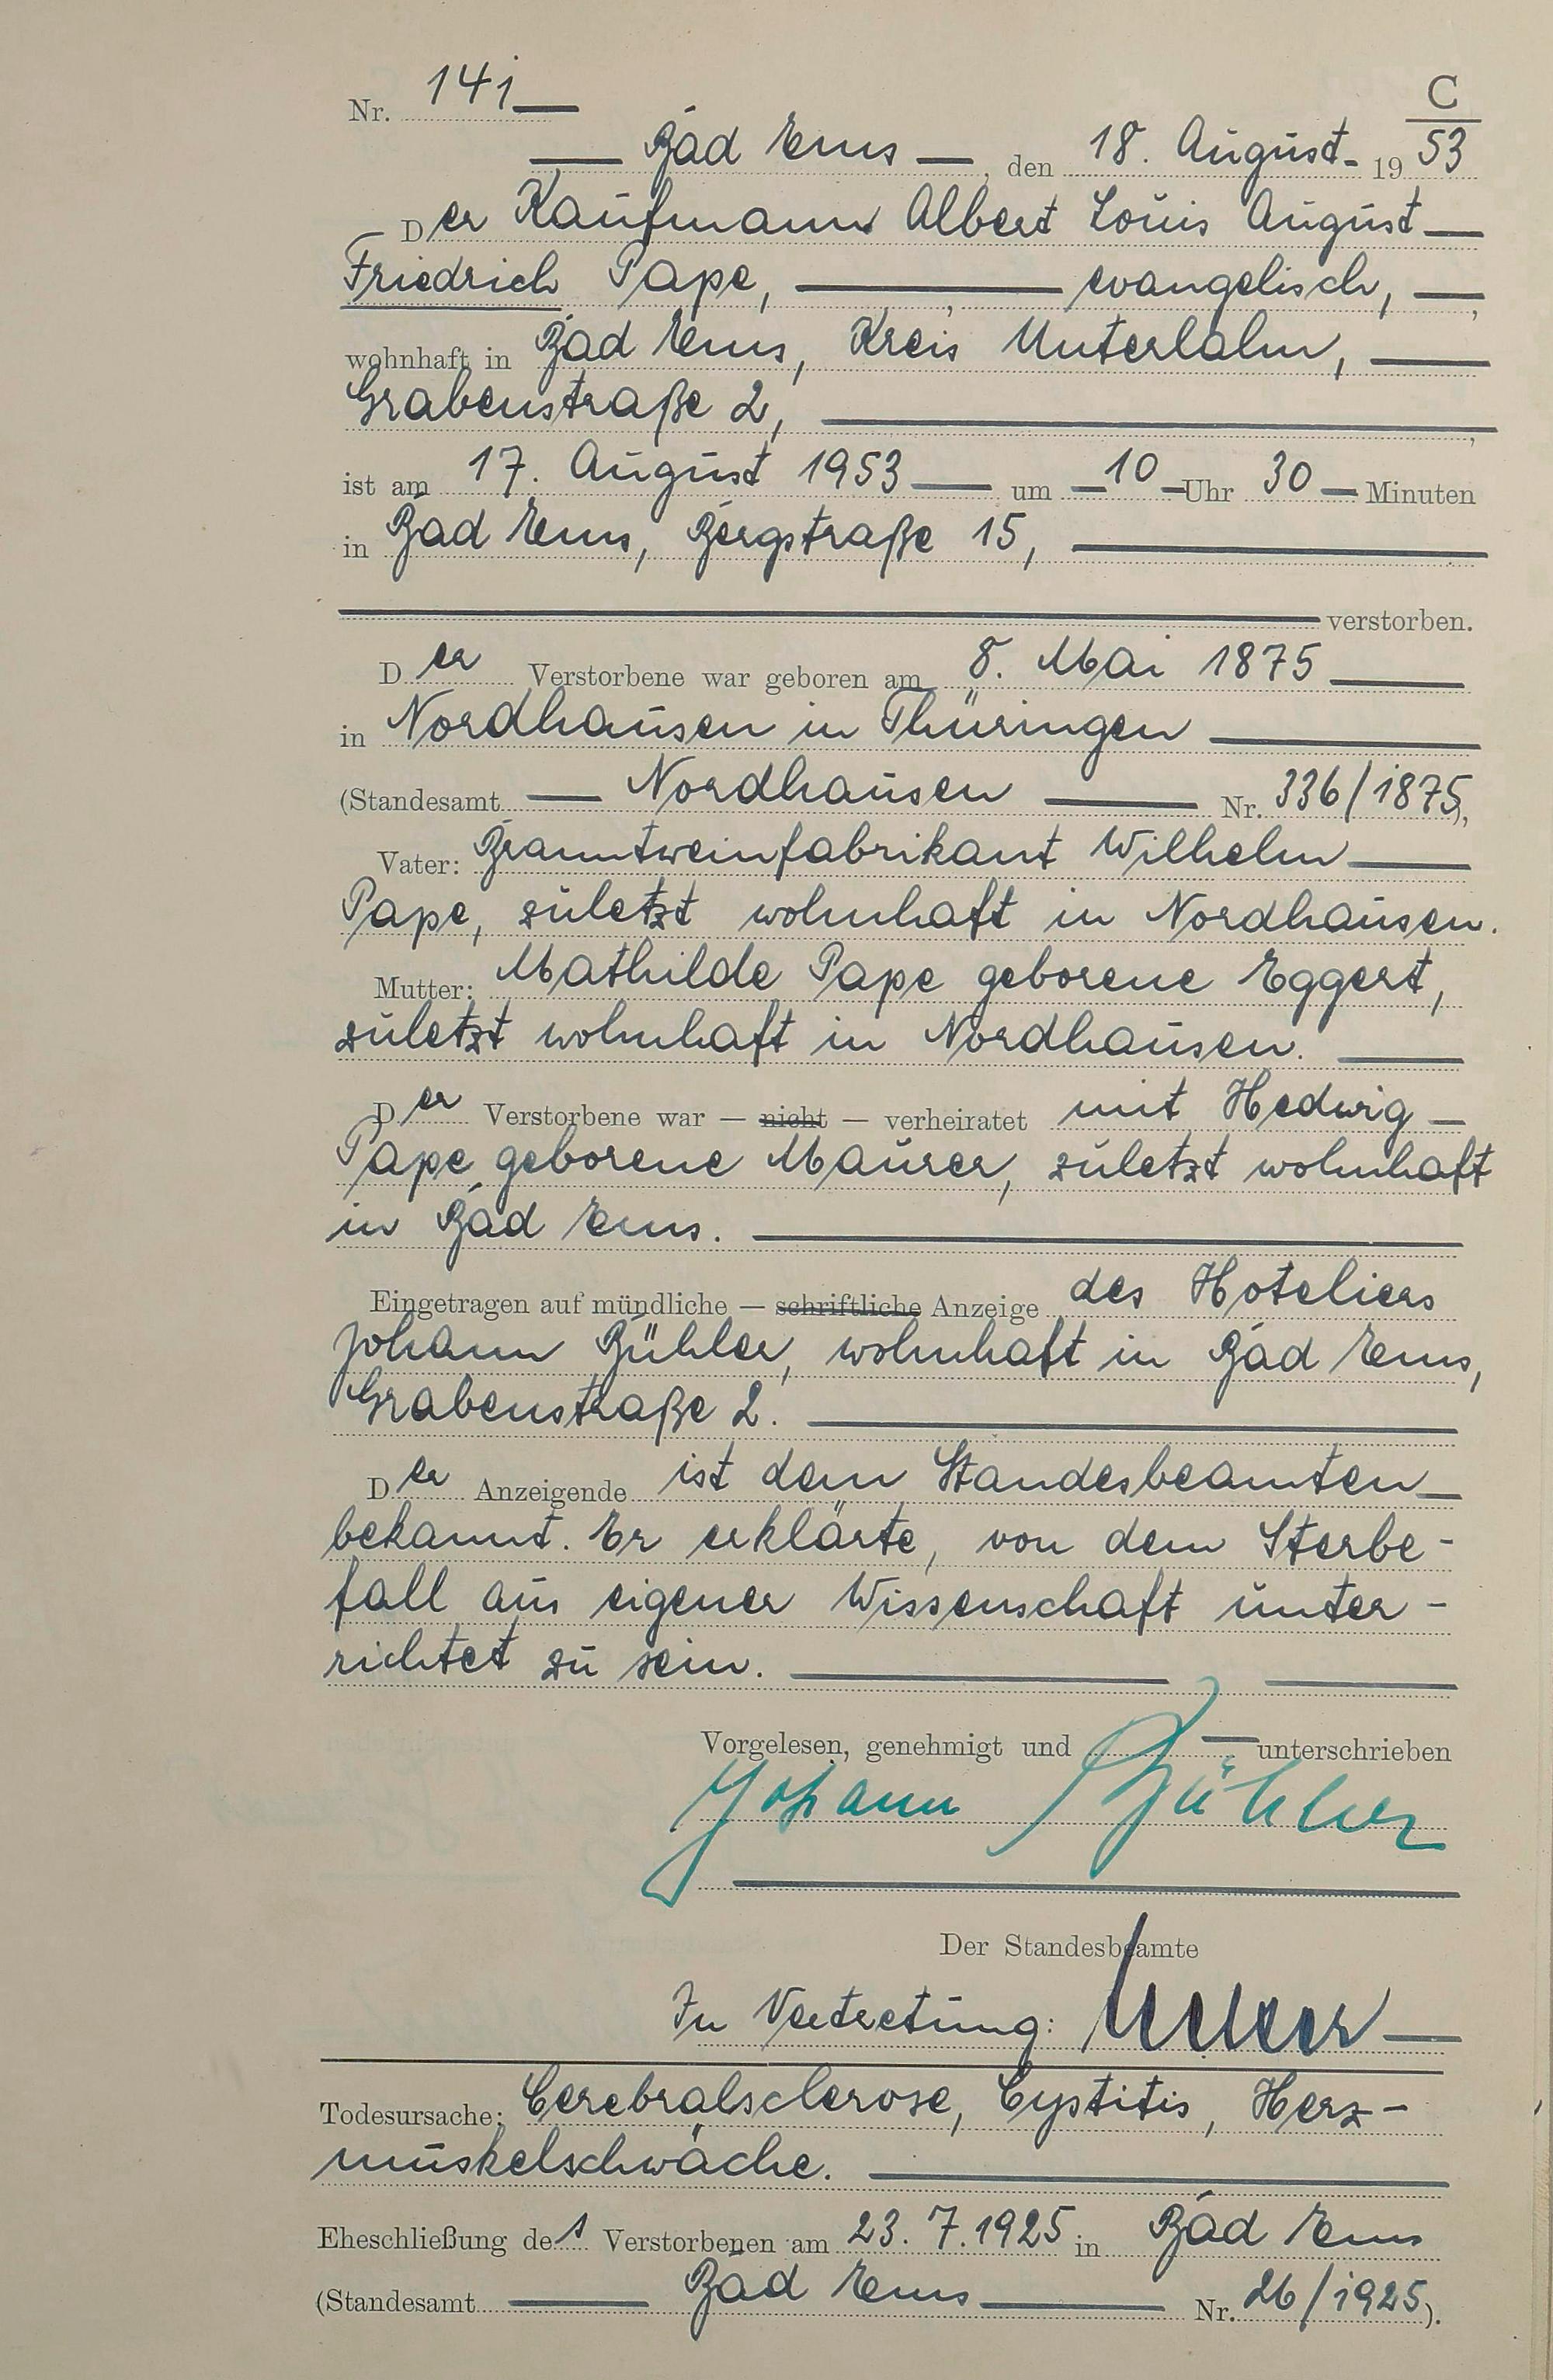 Nr. 141
C
Bad Ems, den 18. August 1953
Der Kaufmann Albert Louis August
Friedrich Pape, evangelisch,
wohnhaft in Bad Ems, Kreis Unterlahn,
Grabenstraße 2,
ist am 17. August 1953 um 10 Uhr 30 Minuten
in Bad Ems, Bergstraße 15,
verstorben.
Der Verstorbene war geboren am 8. Mai 1875
in Nordhausen in Thüringen
(Standesamt Nordhausen Nr. 336/1875),
Vater: Branntweinfabrikant Wilhelm
Pape, zuletzt wohnhaft in Nordhausen.
Mutter: Mathilde Pape geborene Eggert,
zuletzt wohnhaft in Nordhausen.
Der Verstorbene war — nicht — verheiratet mit Hedwig
Pape geborene Maurer, zuletzt wohnhaft
in Bad Ems.
Eingetragen auf mündliche — schriftliche Anzeige des Hoteliers
Johann Bühler, wohnhaft in Bad Ems,
Grabenstraße 2.
Der Anzeigende ist dem Standesbeamten
bekannt. Er erklärte, von dem Sterbe-
fall aus eigener Wissenschaft unter-
richtet zu sein.
Vorgelesen, genehmigt und unterschrieben
Johann Bühler
Der Standesbeamte
In Vertretung:
Todesursache: Cerebralsclerose, Cystitis, Herz-
muskelschwäche.
Eheschließung des Verstorbenen am 23. 7. 1925 in Bad Ems
(Standesamt Bad Ems Nr. 26/1925).